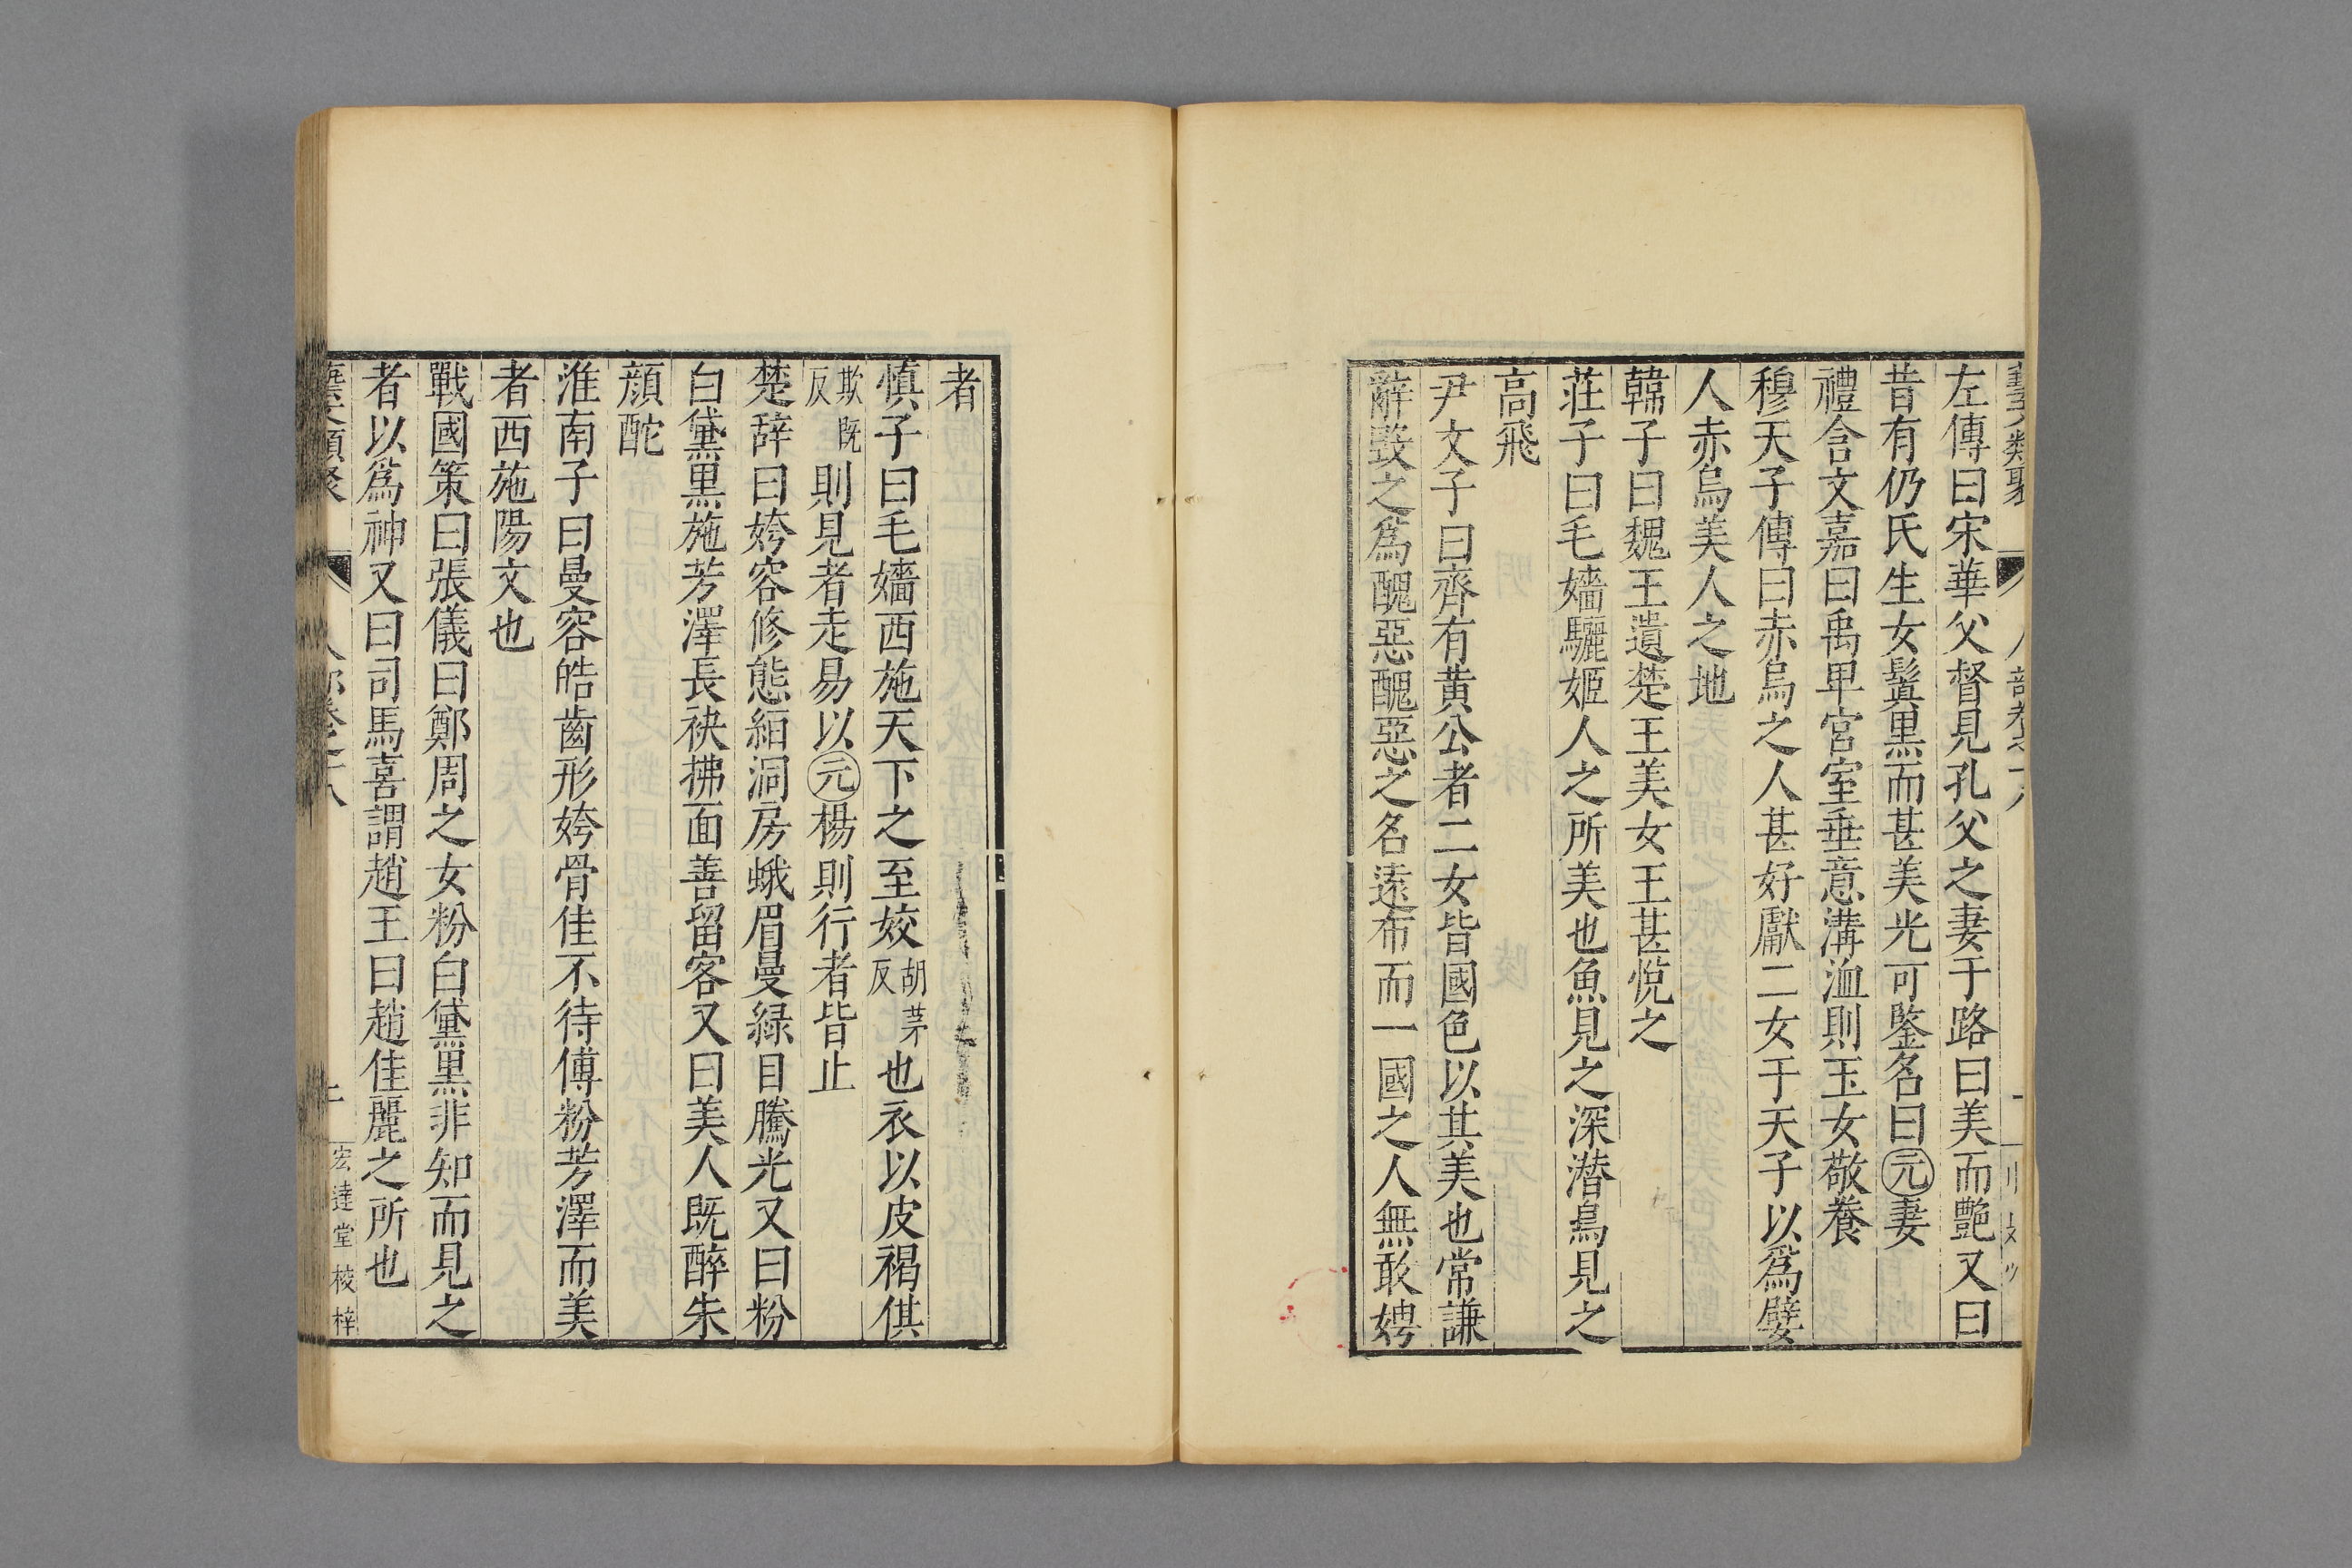 左傳曰宋華父督見孔父之妻于路曰美而艶又曰
昔有仍氏生女鬒黒而甚美光可鑒名曰元妻
禮含文嘉曰禹卑宮室垂意溝洫則玉女敬養
穆天子傳曰赤烏之人甚好獻二女于天子以爲嬖
人赤烏美人之地
韓子曰魏王遺楚王美女王甚悅之
莊子曰毛嬙驪姬人之所美也魚見之深潛鳥見之
高飛
尹文子曰齊有黃公者二女皆國色以其美也常謙
辭毀之爲醜惡醜惡之名遠布而一國之人無敢娉
者
慎子曰毛嬙西施天下之至姣胡茅反也衣以皮褐倛
欺既反則見者走易以元楊則行者皆止
楚辞曰姱容修態絙洞房蛾眉曼緑目騰光又曰粉
白黛黒施芳澤長袂拂面善留客又曰美人既醉朱
顔酡
淮南子曰曼容皓齒形姱骨佳不待傅粉芳澤而美
者西施陽文也
戰國策曰張儀曰鄭周之女粉白黛黒非知而見之
者以爲神又曰司馬喜謂趙王曰趙佳麗之所也
宏達堂校梓